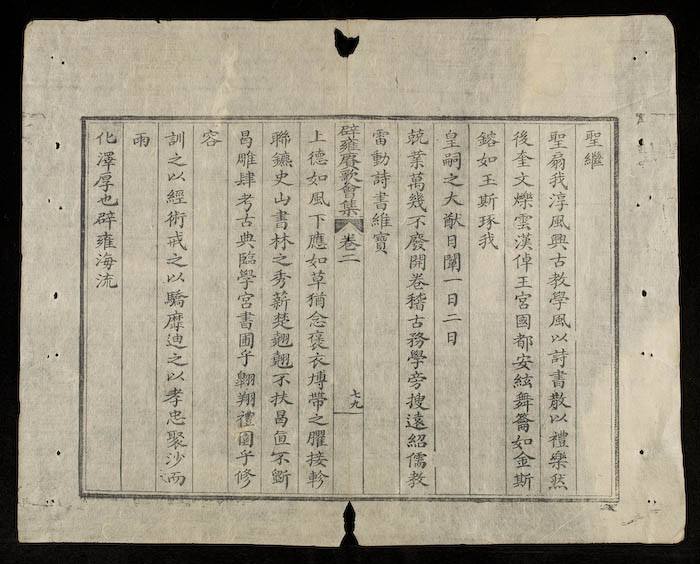 聖繼
聖扇我淳風興古教學風以詩書散以禮樂然
後奎文爍雲漢倬王宮國都安絃舞籥如金斯
鎔如玉斯琢我
皇嗣之大猷日闡一日二日
兢業萬幾不廢開卷稽古務學旁搜遠紹儒教
雷動詩書維寶
辟雍賡歌會集 卷二 七九
上德如風下應如草猶念褒衣博帶之臞接軫
聯鑣史山書林之秀薪楚翹翹不扶曷直不斲
曷雕肆考古典臨學宮書圃乎翱翔禮園乎修
容
訓之以經術戒之以驕靡迪之以孝忠聚沙而
雨
化澤厚也辟雍海流